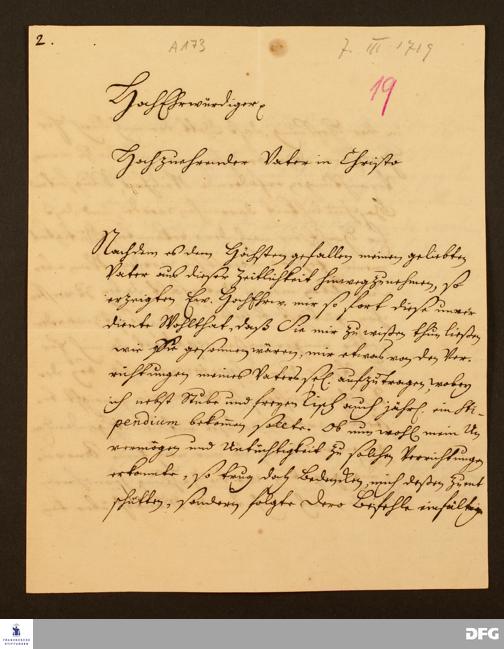 2.
A173
7. III 1719
19
HochEhrwürdiger,
Hochzuehrender Vater in Christo
Nachdem es dem Höchsten gefallen meinen geliebten
Vater aus dieser Zeitlichkeit hinwegzunehmen, so
erzeigten Ew. HochEhrw. mir so fort diese unver
diente Wohlthat, daß Sie mir zu wißen thun ließen
wie Sie gesonnen wären, mir etwas von den Ver-
richtungen meines Vaters sel. aufzutragen, wobey
ich nebst Stube und freyen Tisch auch jährl. ein Sti-
pendium bekommen sollte. Ob nun wohl mein Un
vermögen und Untüchtigkeit zu solchen Verrichtungen
erkannte, so trug doch Bedencken, mich deßen zu ent
schütten, sondern folgte Dero Befehle einfältig
FRANCKESCHE
STIFTUNGEN
DFG